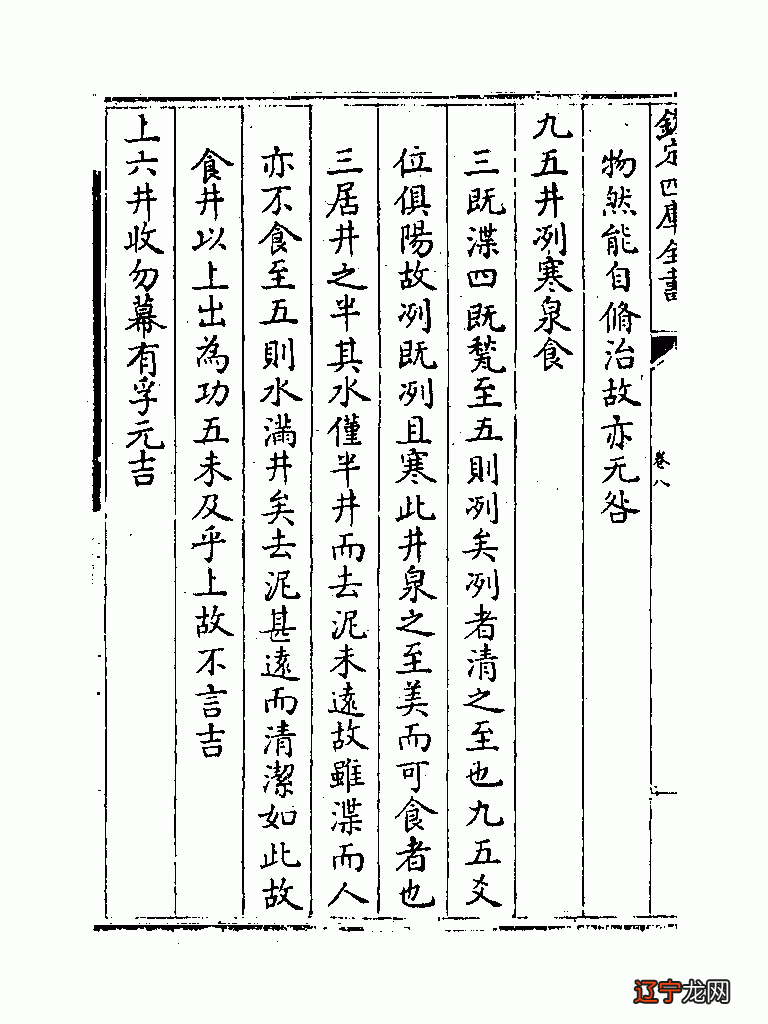 欽定四庫全書
卷八
物然能自脩治故亦无咎
九五井冽寒泉食
三既渫四既甃至五則冽矣冽者清之至也九五爻
位俱陽故冽既冽且寒此井泉之至美而可食者也
三居井之半其水僅半井而去泥未遠故雖渫而人
亦不食至五則水滿井矣去泥甚遠而清潔如此故
食井以上出為功五未及乎上故不言吉
上六井收勿幕有孚元吉
辽宁龙网